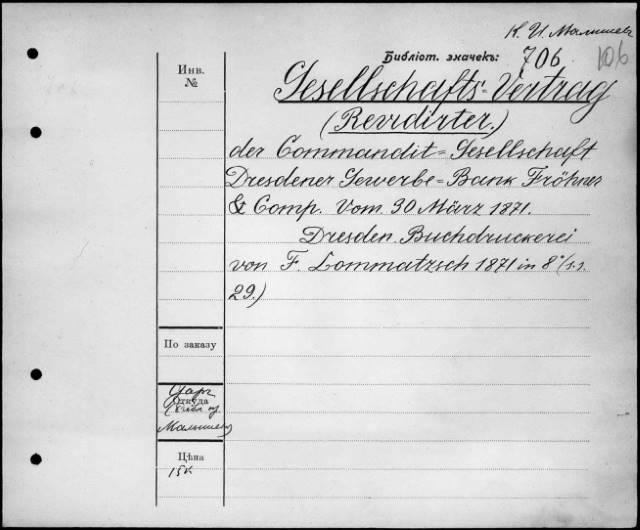 К. И. Малышев
Библіот. значекъ: 706 106
Инв.
№
Gesellschafts=Vertrag
(Revidirter.)
der Commandit=Gesellschaft
Dresdener Gewerbe=Bank Fröhner
& Comp. Vom 30 März 1871.
Dresden. Buchdruckerei
von F. Lommatzsch 1871 in 8° (1-
29.)
По заказу
Даръ
Откуда
Малышева
Цѣна
15к